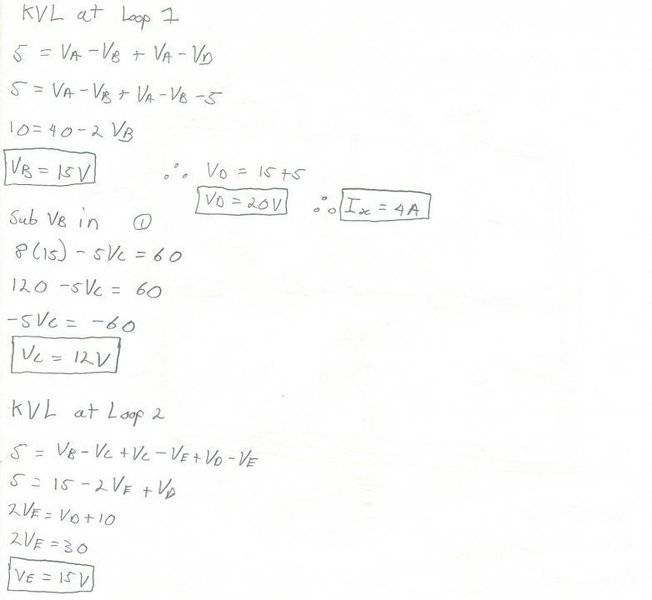 KVL at Loop 1
5 = VA - VB + VA - VD
5 = VA - VB + VA - VB - 5
10 = 40 - 2 VB
VB = 15V ∴ VD = 15 + 5
VD = 20V ∴ Ix = 4A
Sub VB in ①
8(15) - 5VC = 60
120 - 5VC = 60
-5VC = -60
VC = 12V
KVL at Loop 2
5 = VB - VC + VC - VE + VD - VE
5 = 15 - 2VE + VD
2VE = VD + 10
2VE = 30
VE = 15V